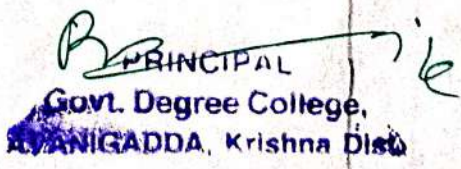 PRINCIPAL
Govt. Degree College,
AVANIGADDA, Krishna Dist.